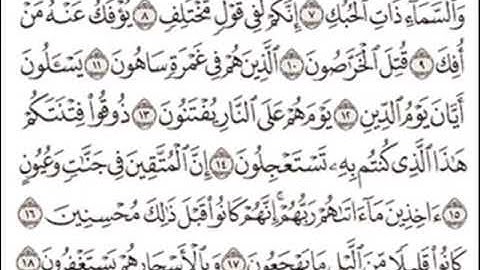 وَٱلسَّمَآءِ ذَاتِ ٱلْحُبُكِ ٧ إِنَّكُمْ لَفِى قَوْلٍ مُّخْتَلِفٍ ٨ يُؤْفَكُ عَنْهُ مَنْ
أُفِكَ ٩ قُتِلَ ٱلْخَرَّٰصُونَ ١٠ ٱلَّذِينَ هُمْ فِى غَمْرَةٍ سَاهُونَ ١١ يَسْـَٔلُونَ
أَيَّانَ يَوْمُ ٱلدِّينِ ١٢ يَوْمَ هُمْ عَلَى ٱلنَّارِ يُفْتَنُونَ ١٣ ذُوقُوا۟ فِتْنَتَكُمْ
هَٰذَا ٱلَّذِى كُنتُم بِهِۦ تَسْتَعْجِلُونَ ١٤ إِنَّ ٱلْمُتَّقِينَ فِى جَنَّٰتٍ وَعُيُونٍ
١٥ ءَاخِذِينَ مَآ ءَاتَىٰهُمْ رَبُّهُمْ ۚ إِنَّهُمْ كَانُوا۟ قَبْلَ ذَٰلِكَ مُحْسِنِينَ ١٦
كَانُوا۟ قَلِيلًا مِّنَ ٱلَّيْلِ مَا يَهْجَعُونَ ١٧ وَبِٱلْأَسْحَارِ هُمْ يَسْتَغْفِرُونَ ١٨